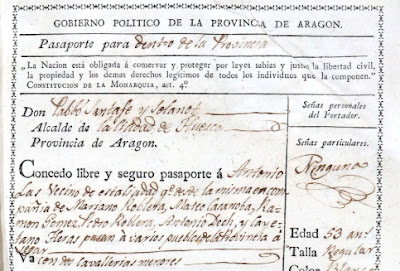 GOBIERNO POLITICO DE LA PROVINCIA DE ARAGON.
Pasaporte para dentro de la Provincia
„La Nacion está obligada á conservar y proteger por leyes sabias y justas la libertad civil,
la propiedad y los demas derechos legítimos de todos los individuos que la componen.”
CONSTITUCION DE LA MONARQUIA, art. 4º
Don Pablo Santafe y Solanot
Alcalde de la Ciudad de Huesca
Provincia de Aragon.
Concedo libre y seguro pasaporte á Antonio
Las Vecino de esta Ciudad qe. desde la misma en com-
pañia de Mariano Roblera, Mateo Casanoba, Ra-
mon Gomez, Isidro Roblera, Antonio Dech, y Caye-
tano Fleras pasan á varios pueblos de la Provincia á
segar
Va con dos cavallerias menores
Señas personales
del Portador.
Señas particulares.
Ninguna
Edad 53 ans.
Talla Regular
Color